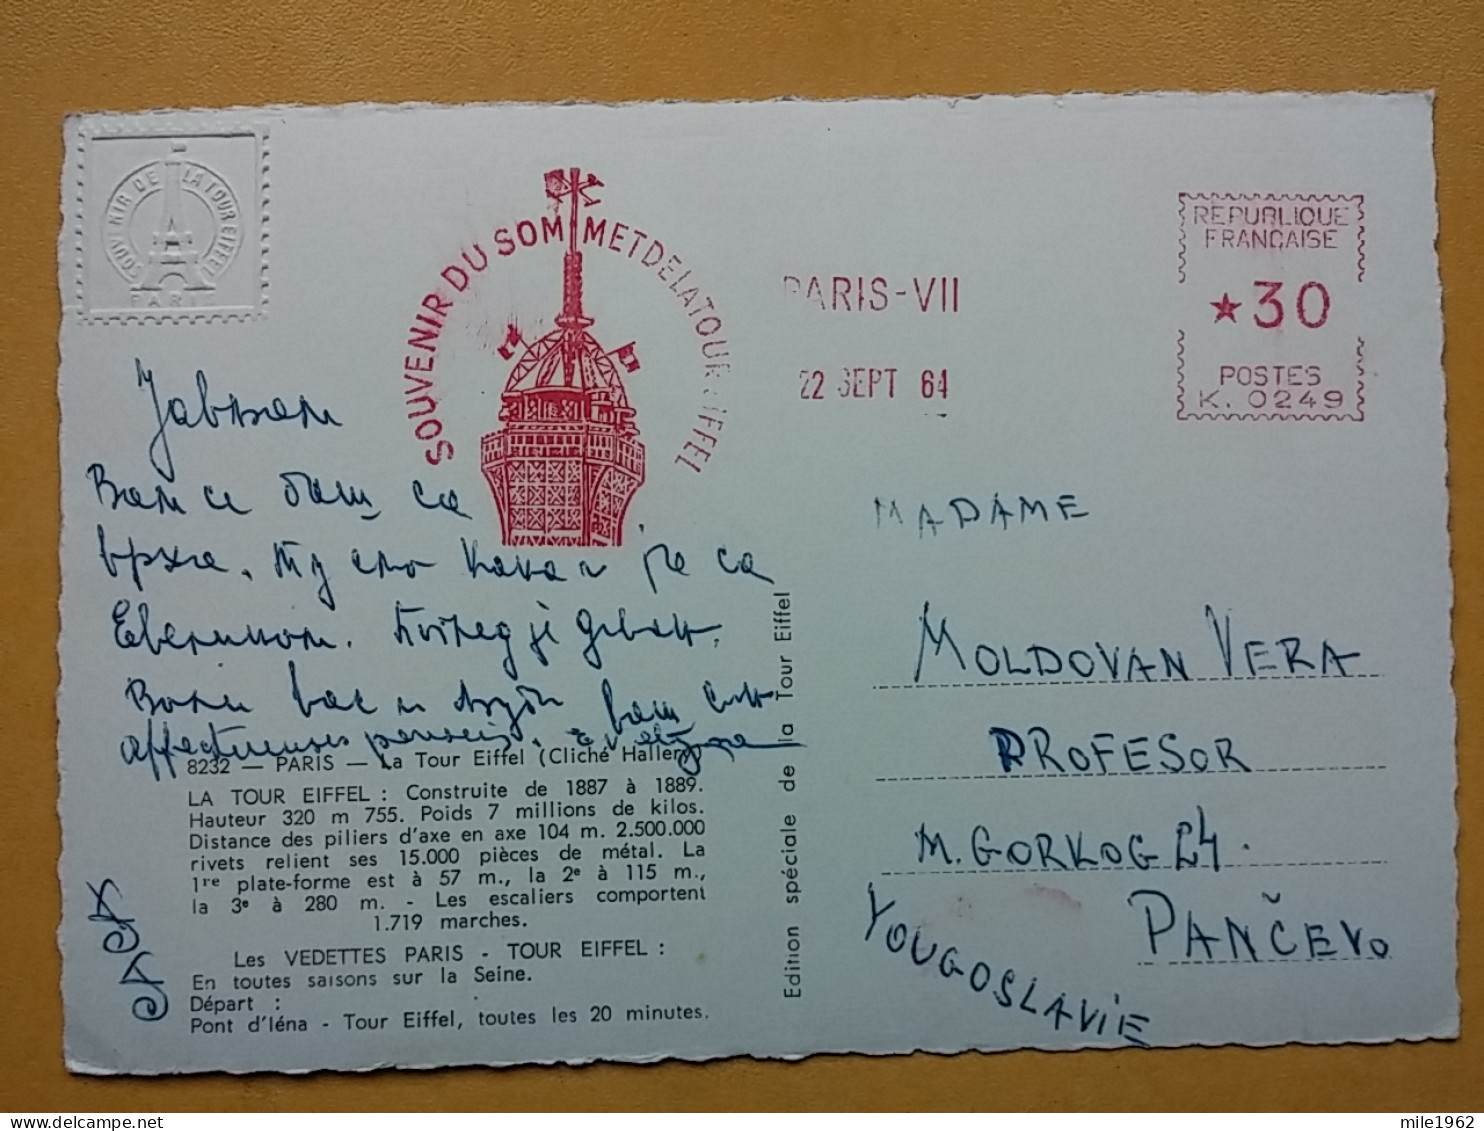 SOUVENIR DE LA TOUR EIFFEL
PARIS
SOUVENIR DU SOMMET DE LA TOUR EIFFEL
PARIS-VII
22 SEPT 64
REPUBLIQUE
FRANÇAISE
★30
POSTES
K. 0249
Јављам
Вам се баш са
врха. Ту смо
са
је диван.
Воли вас и
affectueuses pensées.
8232 — PARIS — La Tour Eiffel (Cliché Haller)
LA TOUR EIFFEL : Construite de 1887 à 1889.
Hauteur 320 m 755. Poids 7 millions de kilos.
Distance des piliers d'axe en axe 104 m. 2.500.000
rivets relient ses 15.000 pièces de métal. La
1re plate-forme est à 57 m., la 2e à 115 m.,
la 3e à 280 m. - Les escaliers comportent
1.719 marches.
Les VEDETTES PARIS - TOUR EIFFEL :
En toutes saisons sur la Seine.
Départ :
Pont d'Iéna - Tour Eiffel, toutes les 20 minutes.
Edition spéciale de la Tour Eiffel
MADAME
MOLDOVAN VERA
PROFESOR
M. GORKOG 24.
PANČEVO
YOUGOSLAVIE
mile1962